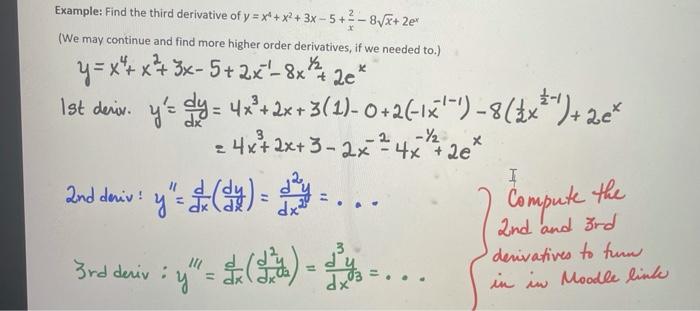 Example: Find the third derivative of y = x⁴ + x² + 3x – 5 + 2/x – 8√x + 2eˣ
(We may continue and find more higher order derivatives, if we needed to.)
y = x⁴ + x² + 3x - 5 + 2x⁻¹ - 8x^½ + 2eˣ
1st deriv. y' = dy/dx = 4x³ + 2x + 3(1) - 0 + 2(-1x⁻¹⁻¹) - 8(½x^(½-1)) + 2eˣ
= 4x³ + 2x + 3 - 2x⁻² - 4x^(-½) + 2eˣ
2nd deriv: y'' = d/dx (dy/dx) = d²y/dx² = . . .
3rd deriv: y''' = d/dx (d²y/dx²) = d³y/dx³ = . . .
Compute the
2nd and 3rd
derivatives to turn
in in Moodle link